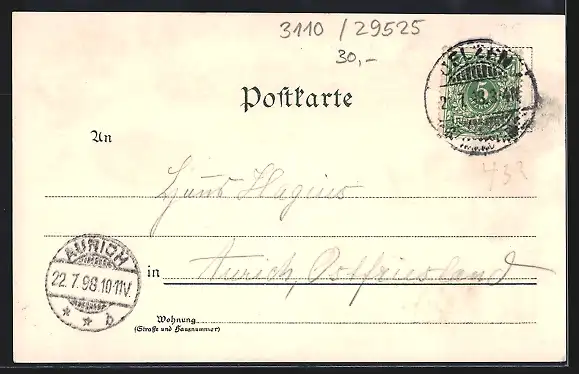 3110 / 29525
30,-
UELZEN
5
Postkarte
An
432
Hagius
AURICH
22.7.98.10-11V.
* * b
in Aurich, Ostfriesland
Wohnung
(Straße und Hausnummer)